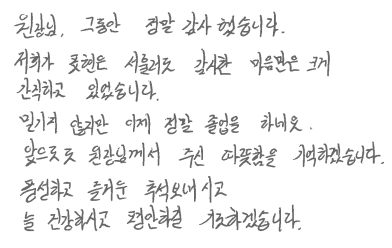 원장님, 그동안 정말 감사했습니다.
저희가 표현은 서툴러도 감사한 마음만은 크게
간직하고 있었습니다.
믿기지 않지만 이제 정말 졸업을 하네요.
앞으로도 원장님께서 주신 따뜻함을 기억하겠습니다.
풍성하고 즐거운 추석보내시고
늘 건강하시고 평안하길 기도하겠습니다.